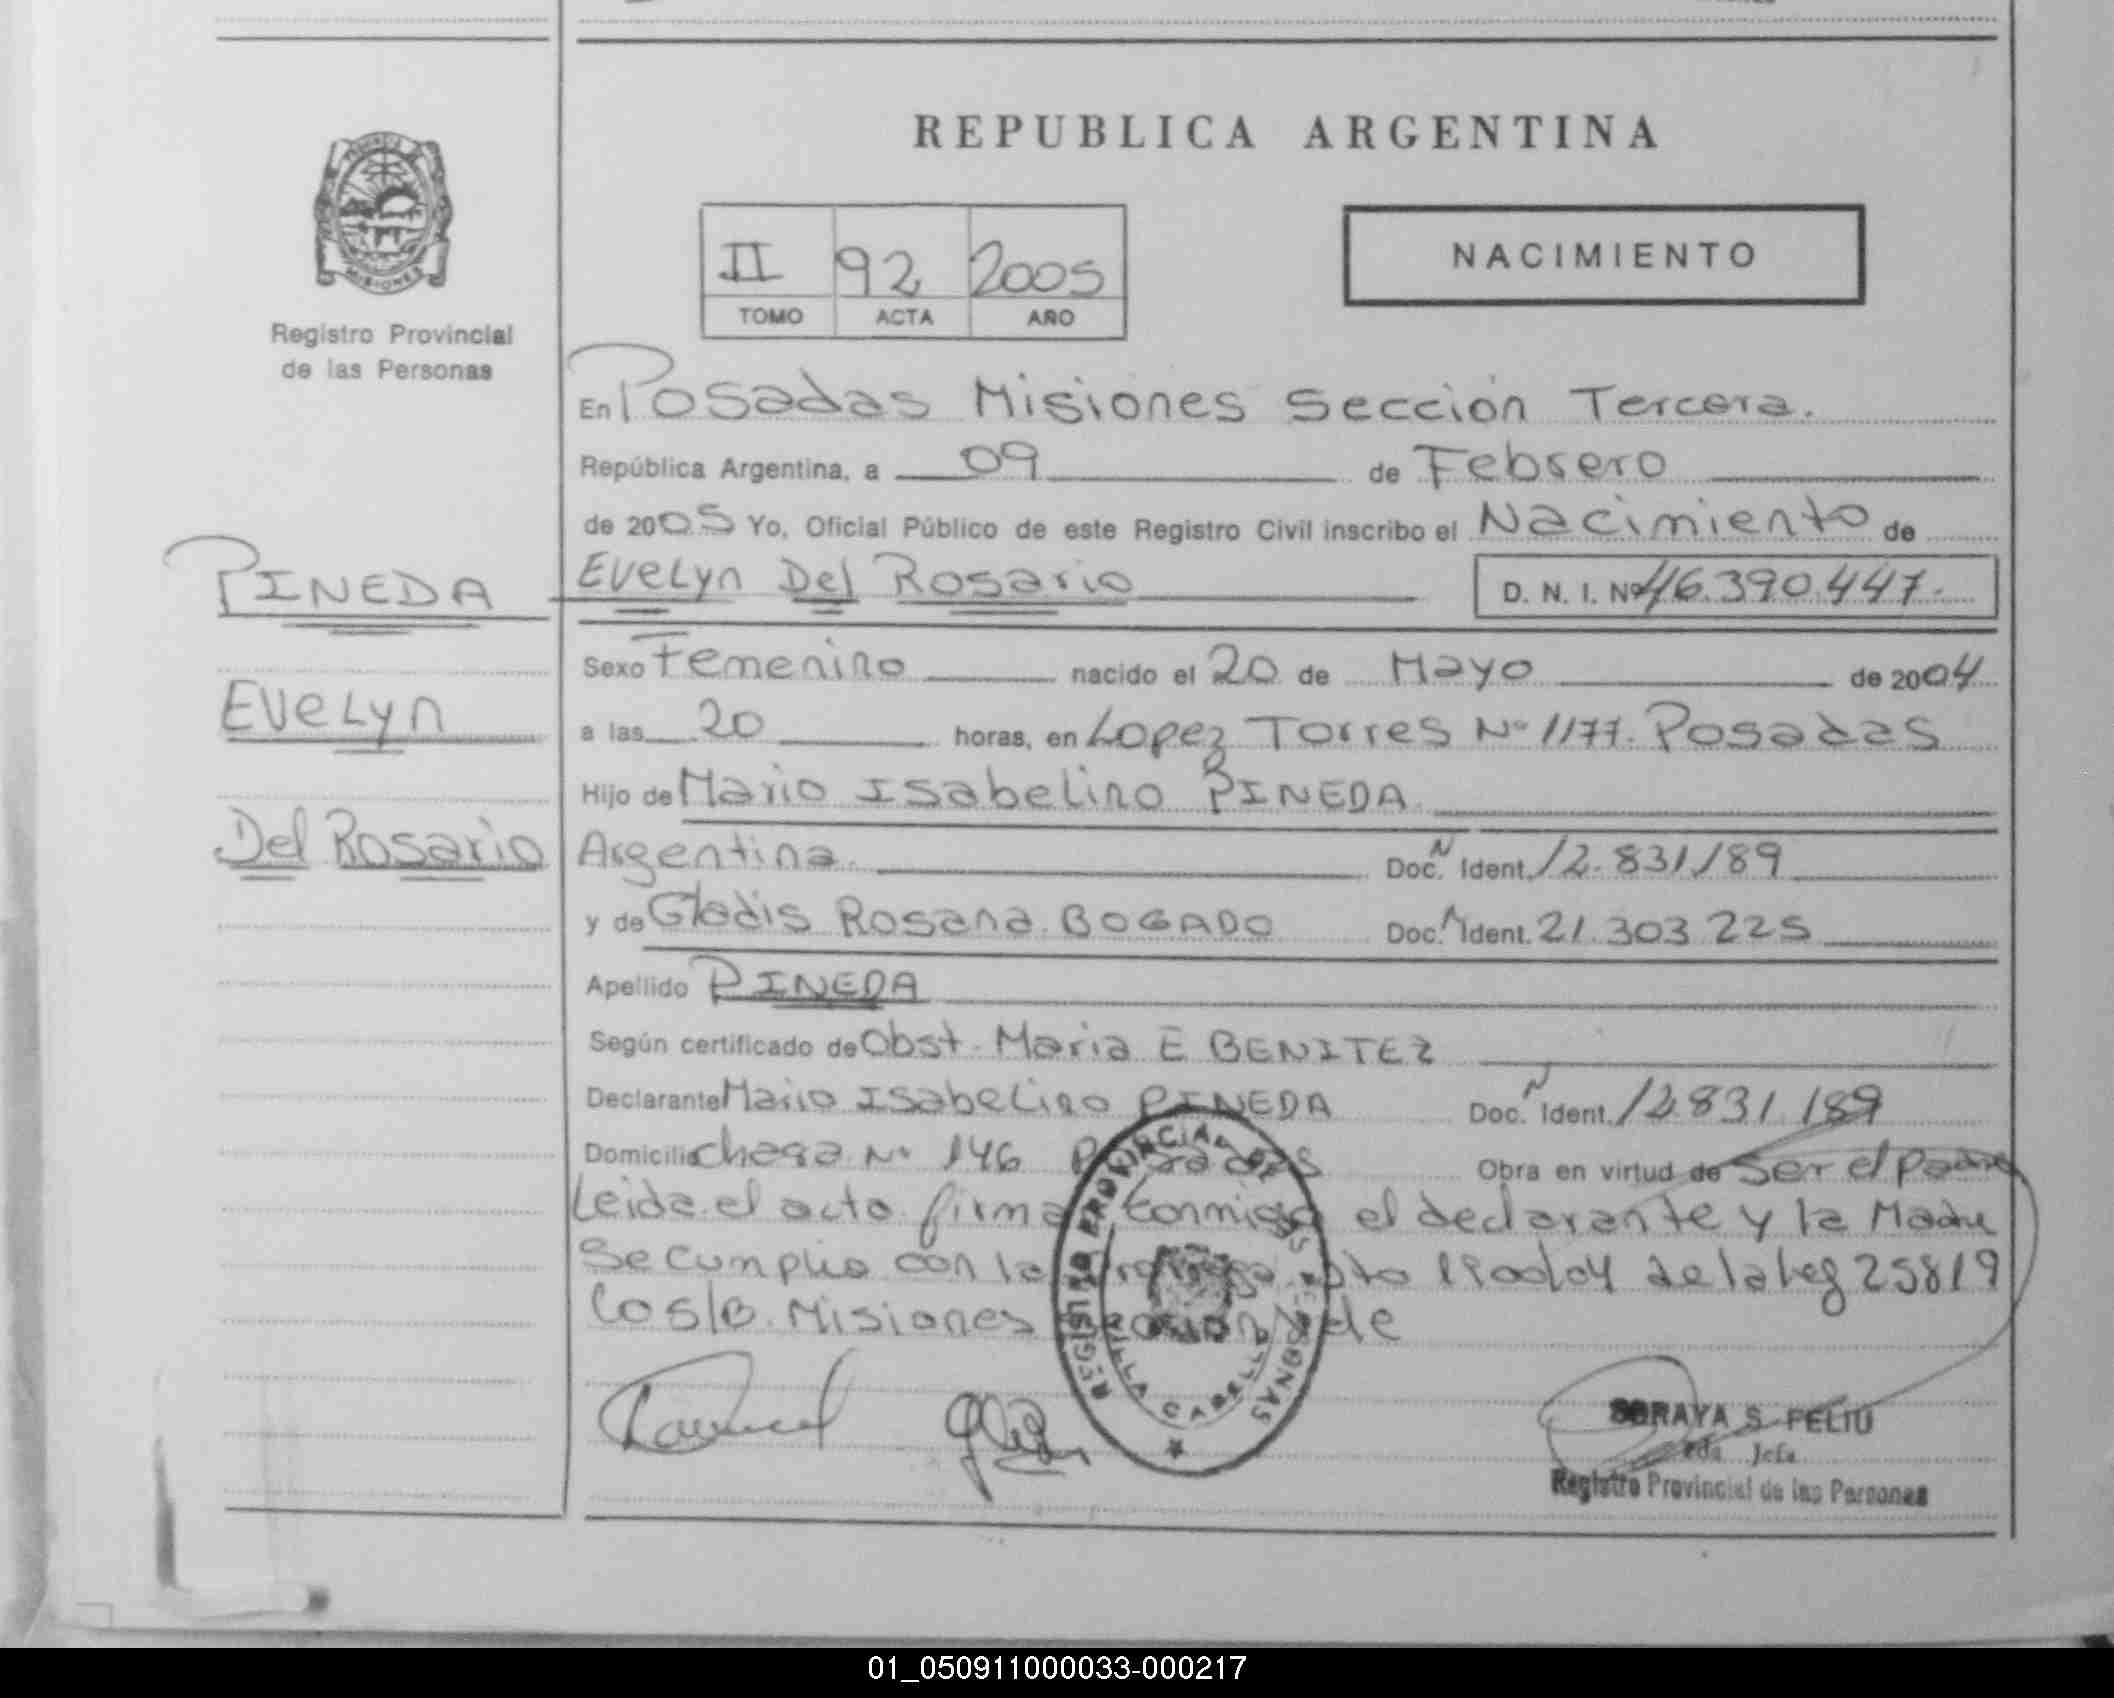 REPUBLICA ARGENTINA
PROVINCIA DE
MISIONES
Registro Provincial
de las Personas
II 92 2005
TOMO ACTA AÑO
NACIMIENTO
En Posadas Misiones Sección Tercera.
República Argentina, a 09 de Febrero
de 2005 Yo, Oficial Público de este Registro Civil inscribo el Nacimiento de
PINEDA
Evelyn Del Rosario
D. N. I. Nº 46.390.447.
Sexo Femenino nacido el 20 de Mayo de 2004
Evelyn
a las 20 horas, en Lopez Torres Nº 1177. Posadas
Hijo de Mario Isabelino PINEDA
Del Rosario
Argentina. Doc. N Ident. 12.831.189
y de Gladis Rosana BOGADO Doc. N Ident. 21.303.225
Apellido PINEDA
Según certificado de Obst. Maria E BENITEZ
Declarante Mario Isabelino PINEDA Doc. N Ident. 12.831.189
Domicilio Chaga Nº 146 Posadas Obra en virtud de Ser el padre
Leida el acto firma conmigo el declarante y la Madre
Se cumplio con la de la ley 25819
Misiones
REGISTRO PROVINCIAL DE LAS PERSONAS
VILLA CABELLO
SORAYA S. FELIU
Jefa
Registro Provincial de las Personas
01_050911000033-000217